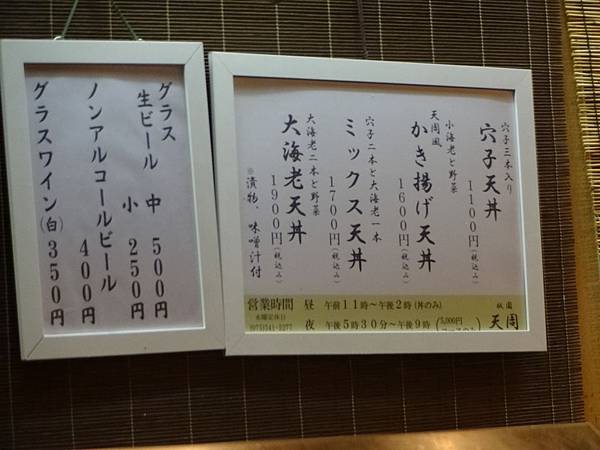 穴子三本入り
穴子天丼
1100円(税込み)
小海老と野菜
天周風
かき揚げ天丼
1600円(税込み)
穴子二本と大海老一本
ミックス天丼
1700円(税込み)
大海老二本と野菜
大海老天丼
1900円(税込み)
※漬物、味噌汁付
営業時間
水曜定休日
(075)541-5277
昼 午前11時～午後2時(丼のみ)
夜 午後5時30分～午後9時
(5,000円
祇園
天周
グラス
生ビール 中 500円
小 250円
ノンアルコールビール
400円
グラスワイン(白)350円